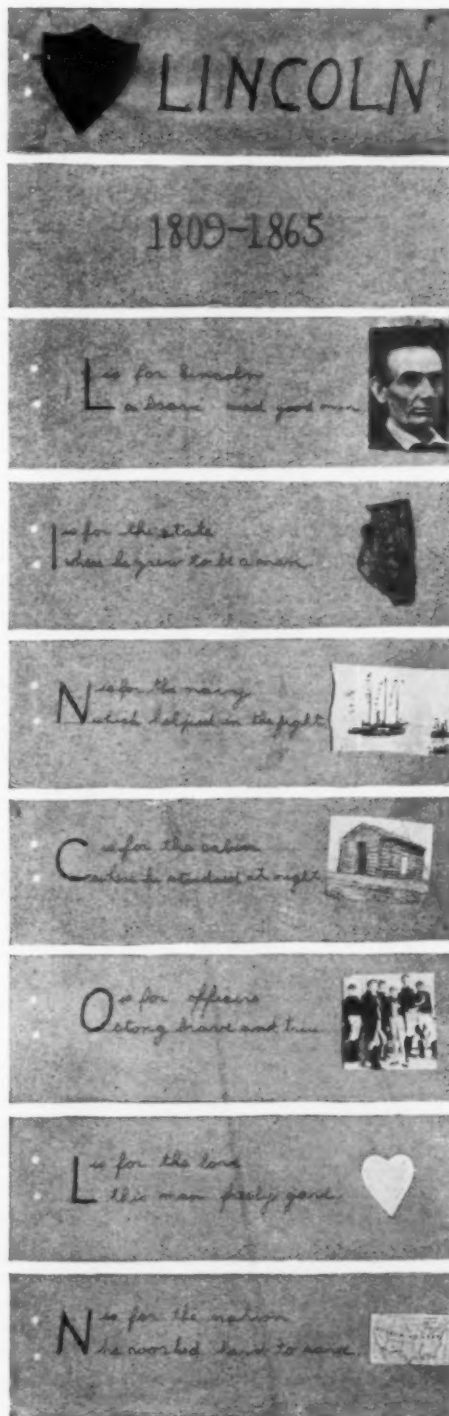 LINCOLN
1809-1865
L is for Lincoln
a brave and good man
I is for the state
where he grew to be a man
N is for the navy
which helped in the fight
C is for the cabin
where he studied at night
O is for officers
strong brave and true
L is for the love
this man freely gave
N is for the nation
he worked hard to save